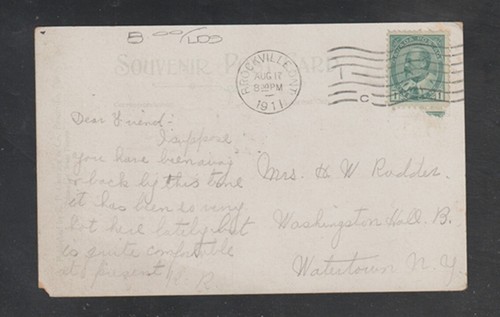 5 00/LDS
SOUVENIR POST CARD
BROCKVILLE, ONT.
AUG 17
8 30 PM
1911
C
Dear Friend:-
I suppose
you have been away
& back by this time
it has been is very
hot here lately but
is quite comfortable
at present
Mrs. H W Rodder.
Washington Hall. B.
Watertown N.Y.